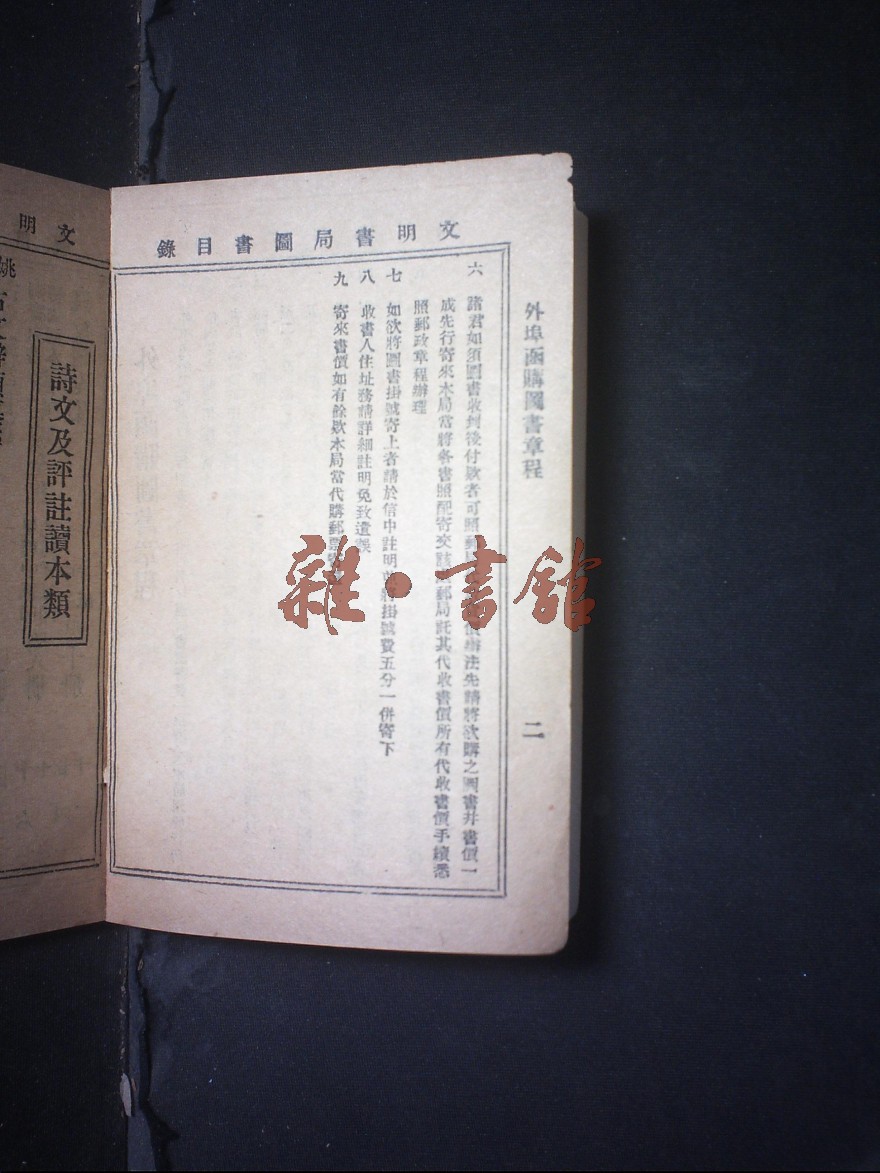 外埠函購圖書章程
二
文明書局圖書目錄
六 諸君如須圖書收到後付欵者可照郵 價辦法先請將欲購之圖書幷書價一
成先行寄來本局當將各書照配寄交該 郵局託其代收書價所有代收書價手續悉
照郵政章程辦理
七 如欲將圖書掛號寄上者請於信中註明 將掛號費五分一併寄下
八 收書人住址務請詳細註明免致遺誤
九 寄來書價如有餘欵本局當代購郵票
雜·書館
文明
詩文及評註讀本類
姚